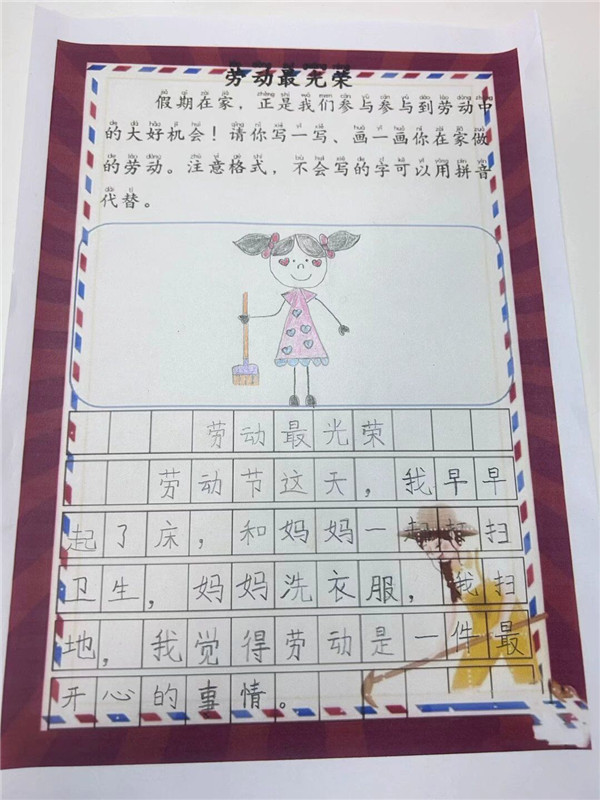 劳动最光荣
假期在家，正是我们参与参与到劳动中
的大好机会！请你写一写、画一画你在家做
的劳动。注意格式，不会写的字可以用拼音
代替。
劳动最光荣
劳动节这天，我早早
起了床，和妈妈一起打扫
卫生，妈妈洗衣服，我扫
地，我觉得劳动是一件最
开心的事情。